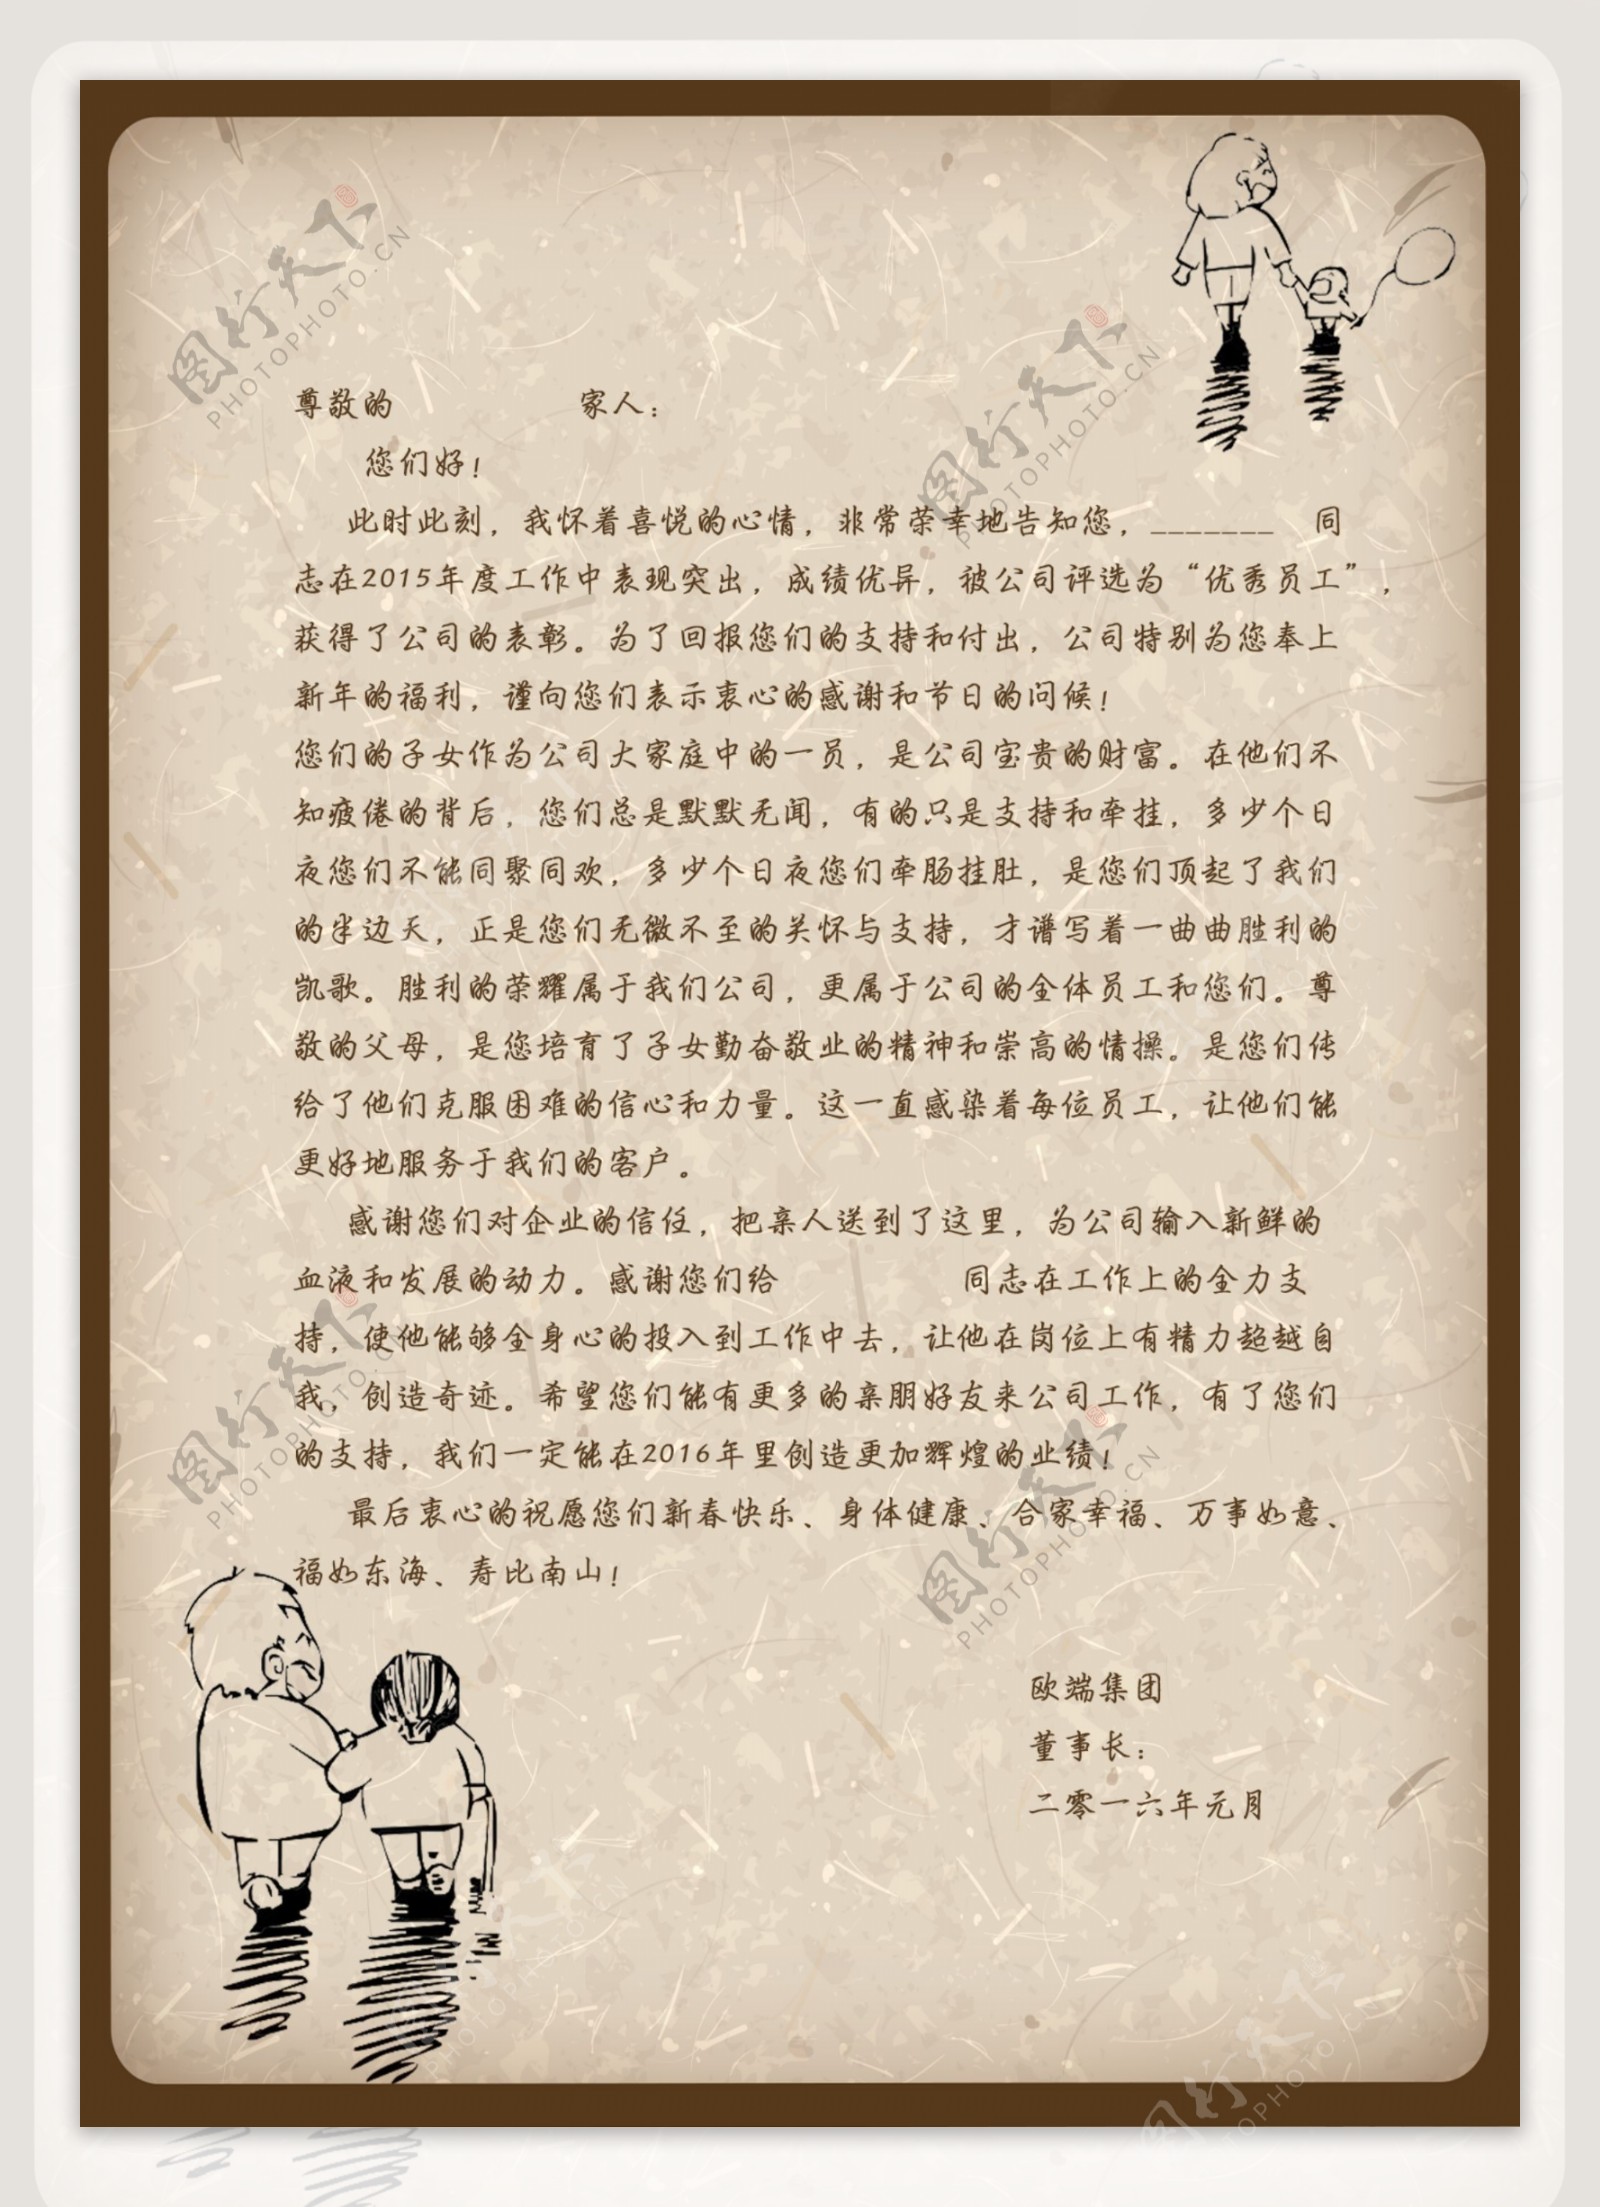 尊敬的 家人：
您们好！
此时此刻，我怀着喜悦的心情，非常荣幸地告知您，_______ 同
志在2015年度工作中表现突出，成绩优异，被公司评选为“优秀员工”，
获得了公司的表彰。为了回报您们的支持和付出，公司特别为您奉上
新年的福利，谨向您们表示衷心的感谢和节日的问候！
您们的子女作为公司大家庭中的一员，是公司宝贵的财富。在他们不
知疲倦的背后，您们总是默默无闻，有的只是支持和牵挂，多少个日
夜您们不能同聚同欢，多少个日夜您们牵肠挂肚，是您们顶起了我们
的半边天，正是您们无微不至的关怀与支持，才谱写着一曲曲胜利的
凯歌。胜利的荣耀属于我们公司，更属于公司的全体员工和您们。尊
敬的父母，是您培育了子女勤奋敬业的精神和崇高的情操。是您们传
给了他们克服困难的信心和力量。这一直感染着每位员工，让他们能
更好地服务于我们的客户。
感谢您们对企业的信任，把亲人送到了这里，为公司输入新鲜的
血液和发展的动力。感谢您们给 同志在工作上的全力支
持，使他能够全身心的投入到工作中去，让他在岗位上有精力超越自
我，创造奇迹。希望您们能有更多的亲朋好友来公司工作，有了您们
的支持，我们一定能在2016年里创造更加辉煌的业绩！
最后衷心的祝愿您们新春快乐、身体健康、合家幸福、万事如意、
福如东海、寿比南山！
欧端集团
董事长：
二零一六年元月
图行天下
PHOTOPHOTO.CN
图行天下
PHOTOPHOTO.CN
图行天下
PHOTOPHOTO.CN
图行天下
PHOTOPHOTO.CN
图行天下
PHOTOPHOTO.CN